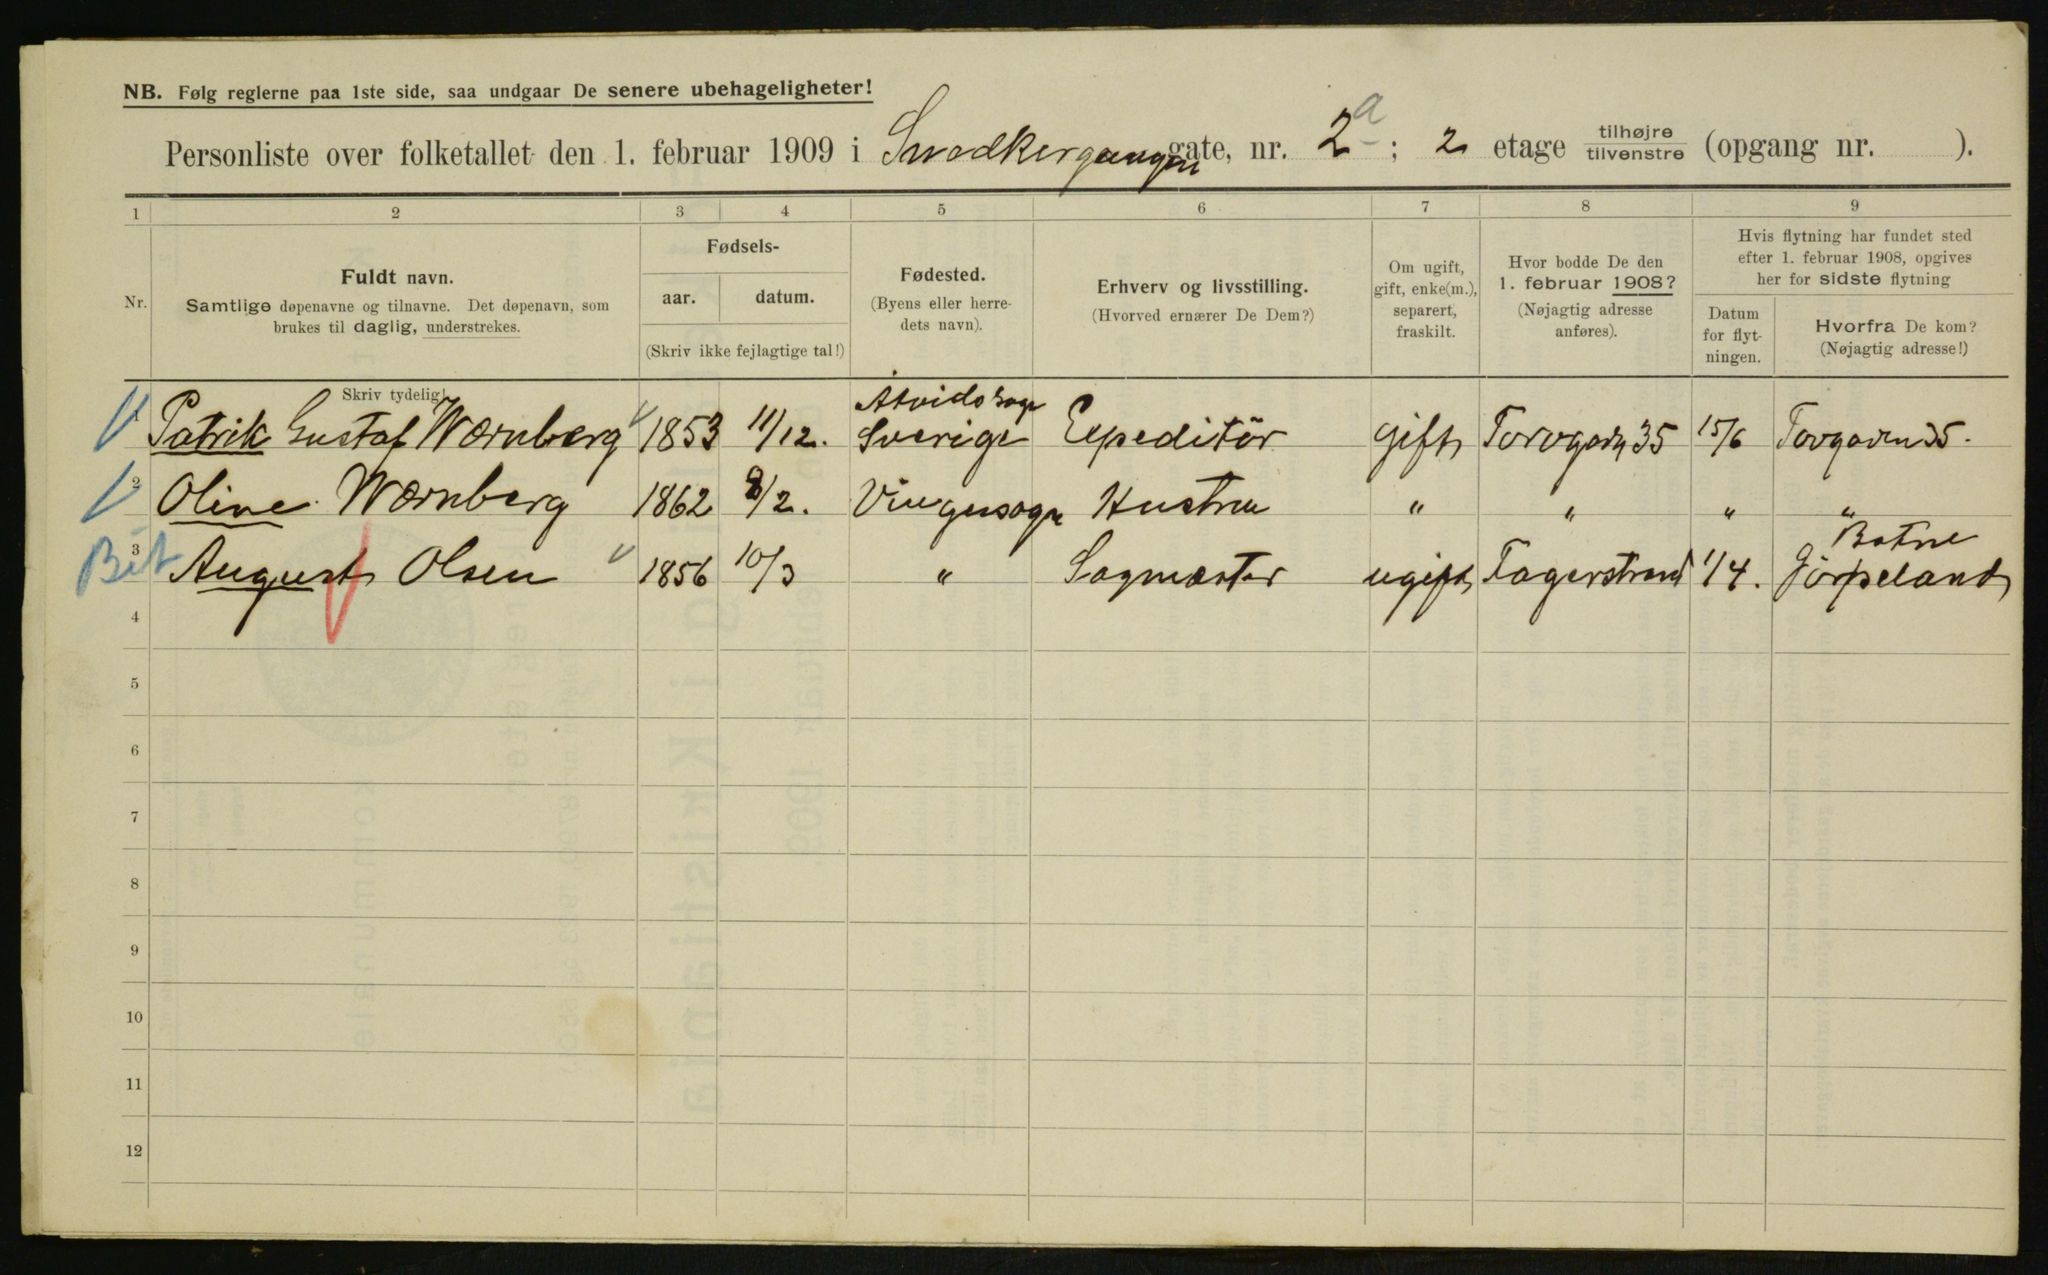 NB. Følg reglerne paa 1ste side, saa undgaar De senere ubehageligheter!
Personliste over folketallet den 1. februar 1909 i Snedkergangen gate, nr. 2a; 2 etage tilhøjre tilvenstre (opgang nr. ).
1 2 3 4 5 6 7 8 9
Nr.
Fuldt navn.
Samtlige døpenavne og tilnavne. Det døpenavn, som
brukes til daglig, understrekes.
Fødsels-
aar. datum.
(Skriv ikke fejlagtige tal!)
Fødested.
(Byens eller herre-
dets navn).
Erhverv og livsstilling.
(Hvorved ernærer De Dem?)
Om ugift,
gift, enke(m.),
separert,
fraskilt.
Hvor bodde De den
1. februar 1908?
(Nøjagtig adresse
anføres).
Hvis flytning har fundet sted
efter 1. februar 1908, opgives
her for sidste flytning
Datum
for flyt-
ningen.
Hvorfra De kom?
(Nøjagtig adresse!)
Skriv tydelig!
1 Patrik Gustaf Wærnberg 1853 11/12. Sverige Expeditör gift Torvgadn 35 15/6 Torvgaden 35.
2 Oline Wærnberg 1862 /2. Vingersogn Hustru " " " "
Botne
3 August Olsen 1856 10/3 " Sagmæster ugift Fagerstrand 1/4. Jörpeland
4
5
6
7
8
9
10
11
12